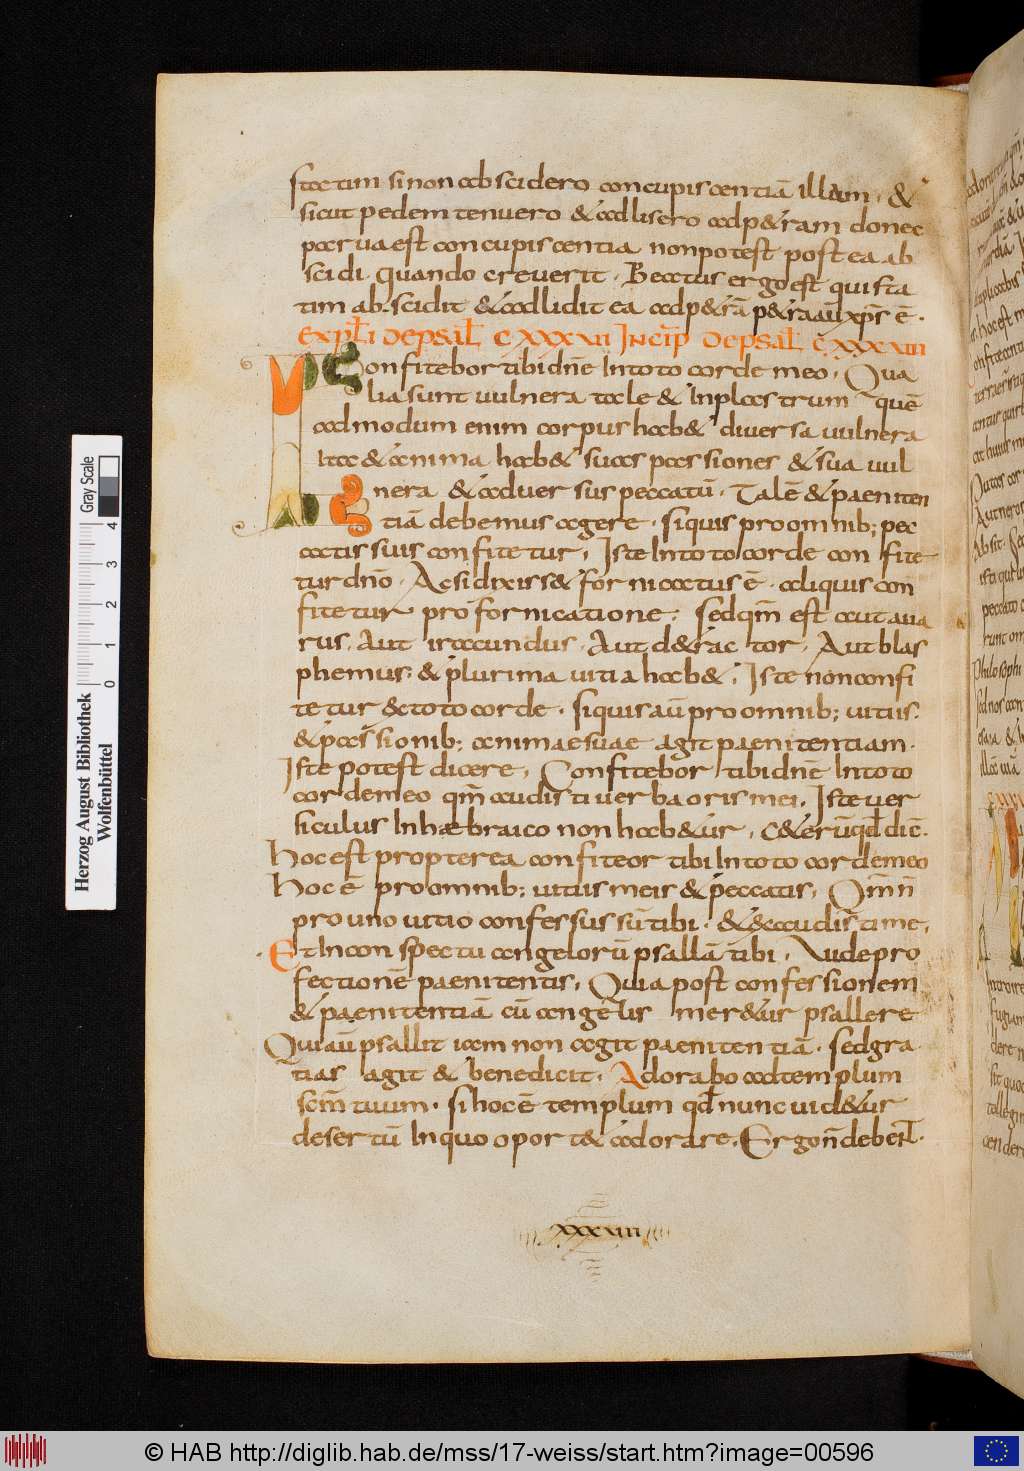 statim si non abscidero concupiscentiā illam · &
sicut pedem tenuero & adlisero ad p&ram donec
parua est concupiscentia non potest postea ab
scidi · quando creuerit · Beatus ergo est qui sta
tim abscidit & adlidit ea ad p&rā p&ra aū xp̄s ē ·
Expl̄i de psal̄ CXXXVII Incip̄ De psal̄ CXXXVIII
Confitebor tibi dn̄e In toto corde meo · Qua
lia sunt uulnera tale & Inplastrum quē
admodum enim corpus hab& diuersa uulnera
Ita & anima hab& suas passiones & sua uul
nera & aduersus peccatū · Talē & paeniten
tiā debemus agere · si quis pro omnib; pec
catis suis confitetur · Iste In toto corde confite
tur dn̄o · Ac si dixiss& fornicatus ē · aliquis con
fitetur pro fornicatione · sed qm̄ est aut aua
rus · Aut iracundus · Aut d&ractor · Aut blas
phemus · & plurima uitia hab& · Iste non confi
tetur ex toto corde · si quis aū pro omnib; uitiis
& passionib; animae suae agit paenitentiam ·
Iste potest dicere · Confitebor tibi dn̄e In toto
corde meo qm̄ audisti uerba oris mei · Iste uer
siculus In haebraico non hab&ur · C&erū qd̄ dic̄ ·
hoc est propterea confiteor tibi In toto corde meo
hoc ē pro omnib; uitiis meis & peccatis · Qm̄ n̄
pro uno uitio confessus sū tibi · & exaudisti me ·
Et In conspectu angelorū psallā tibi · Uide pro
fectionē paenitentis · Quia post confessionem
& paenitentiā cū angelis mer&ur psallere
Qui aū psallit iam non agit paenitentiā · sed gra
tias agit & benedicit · Adorabo ad templum
scm̄ tuum · si hoc ē templum qd̄ nunc uid&ur
desertū In quo oport& adorare · Ergo n̄ deben̄t ·
XXXVIII
Herzog August Bibliothek
Wolfenbüttel
Gray Scale
0 1 2 3 4
© HAB http://diglib.hab.de/mss/17-weiss/start.htm?image=00596